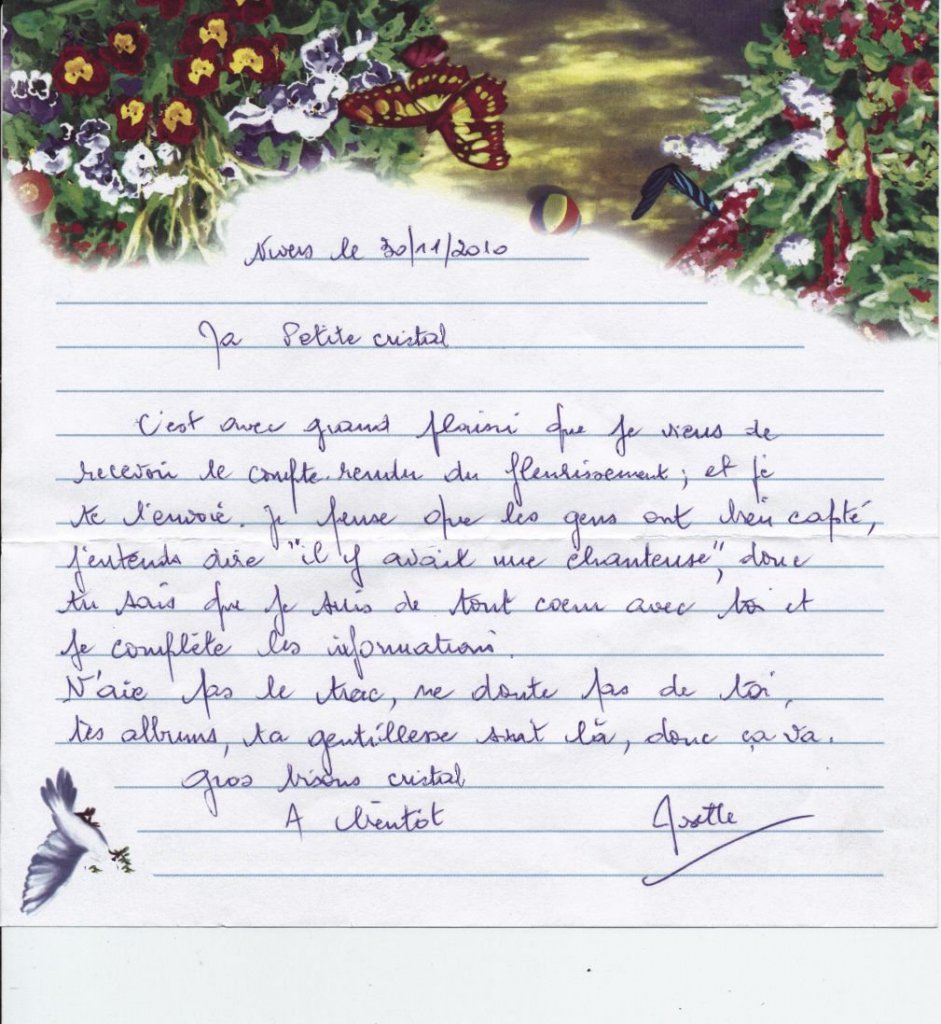 le 30/11/2010
Ma Petite cristal
C'est avec grand plaisir que je viens de
recevoir le compte-rendu du fleurissement ; et je
te l'envoie. Je pense que les gens ont bien capté,
j'entends dire "il y avait une chanteuse", donc
tu sais que je suis de tout coeur avec toi et
je complète les informations.
N'aie pas le trac, ne doute pas de toi,
tes albums, ta gentillesse sont là, donc ça va.
Gros bisous cristal
A bientôt